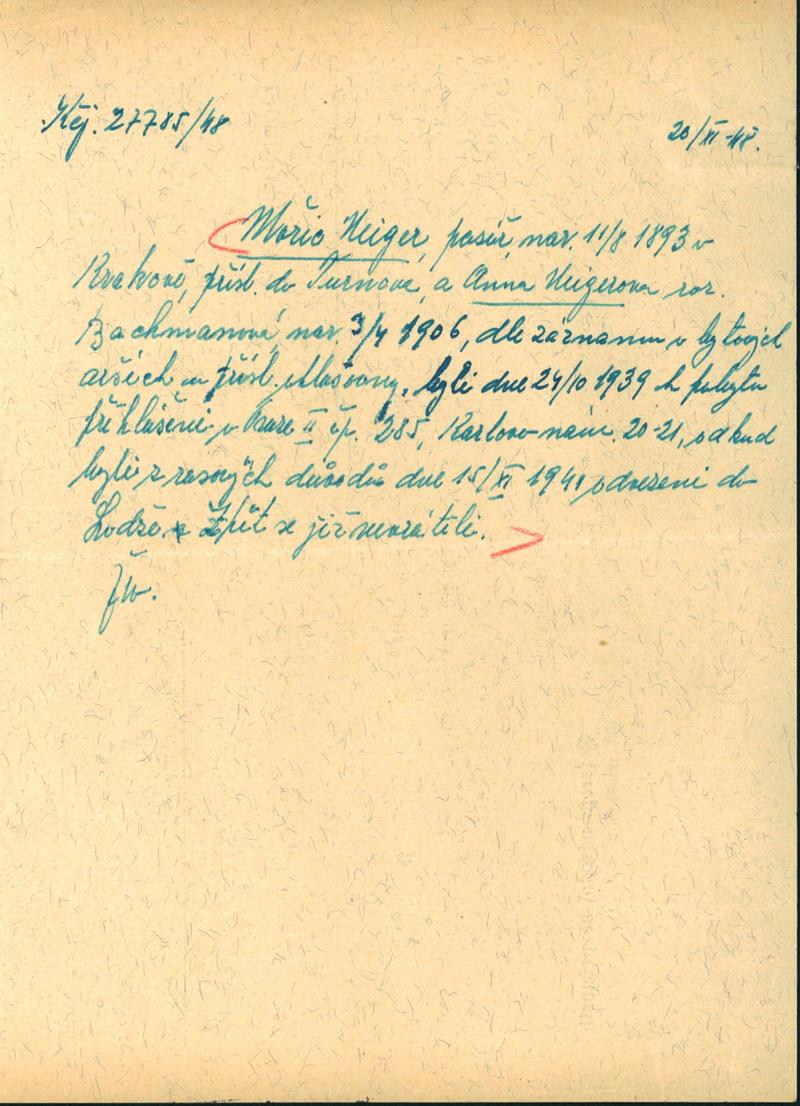 Kčj. 27785/48
20/XI-48.
Mořic Heiger, pasíř, nar. 11/8 1893 v
Krakově, přísl. do Turnova, a Anna Heigerova roz.
Bachmanová nar. 3/4 1906, dle záznamu v bytových
arších přísl. byli dne 24/10 1939 k pobytu
přihlášeni v Praze II čp. 285, Karlovo nám. 20-21, odkud
byli z rasových důvodů dne 15/XI 1941 odvezeni do
Lodže Zpět se již nevrátili.